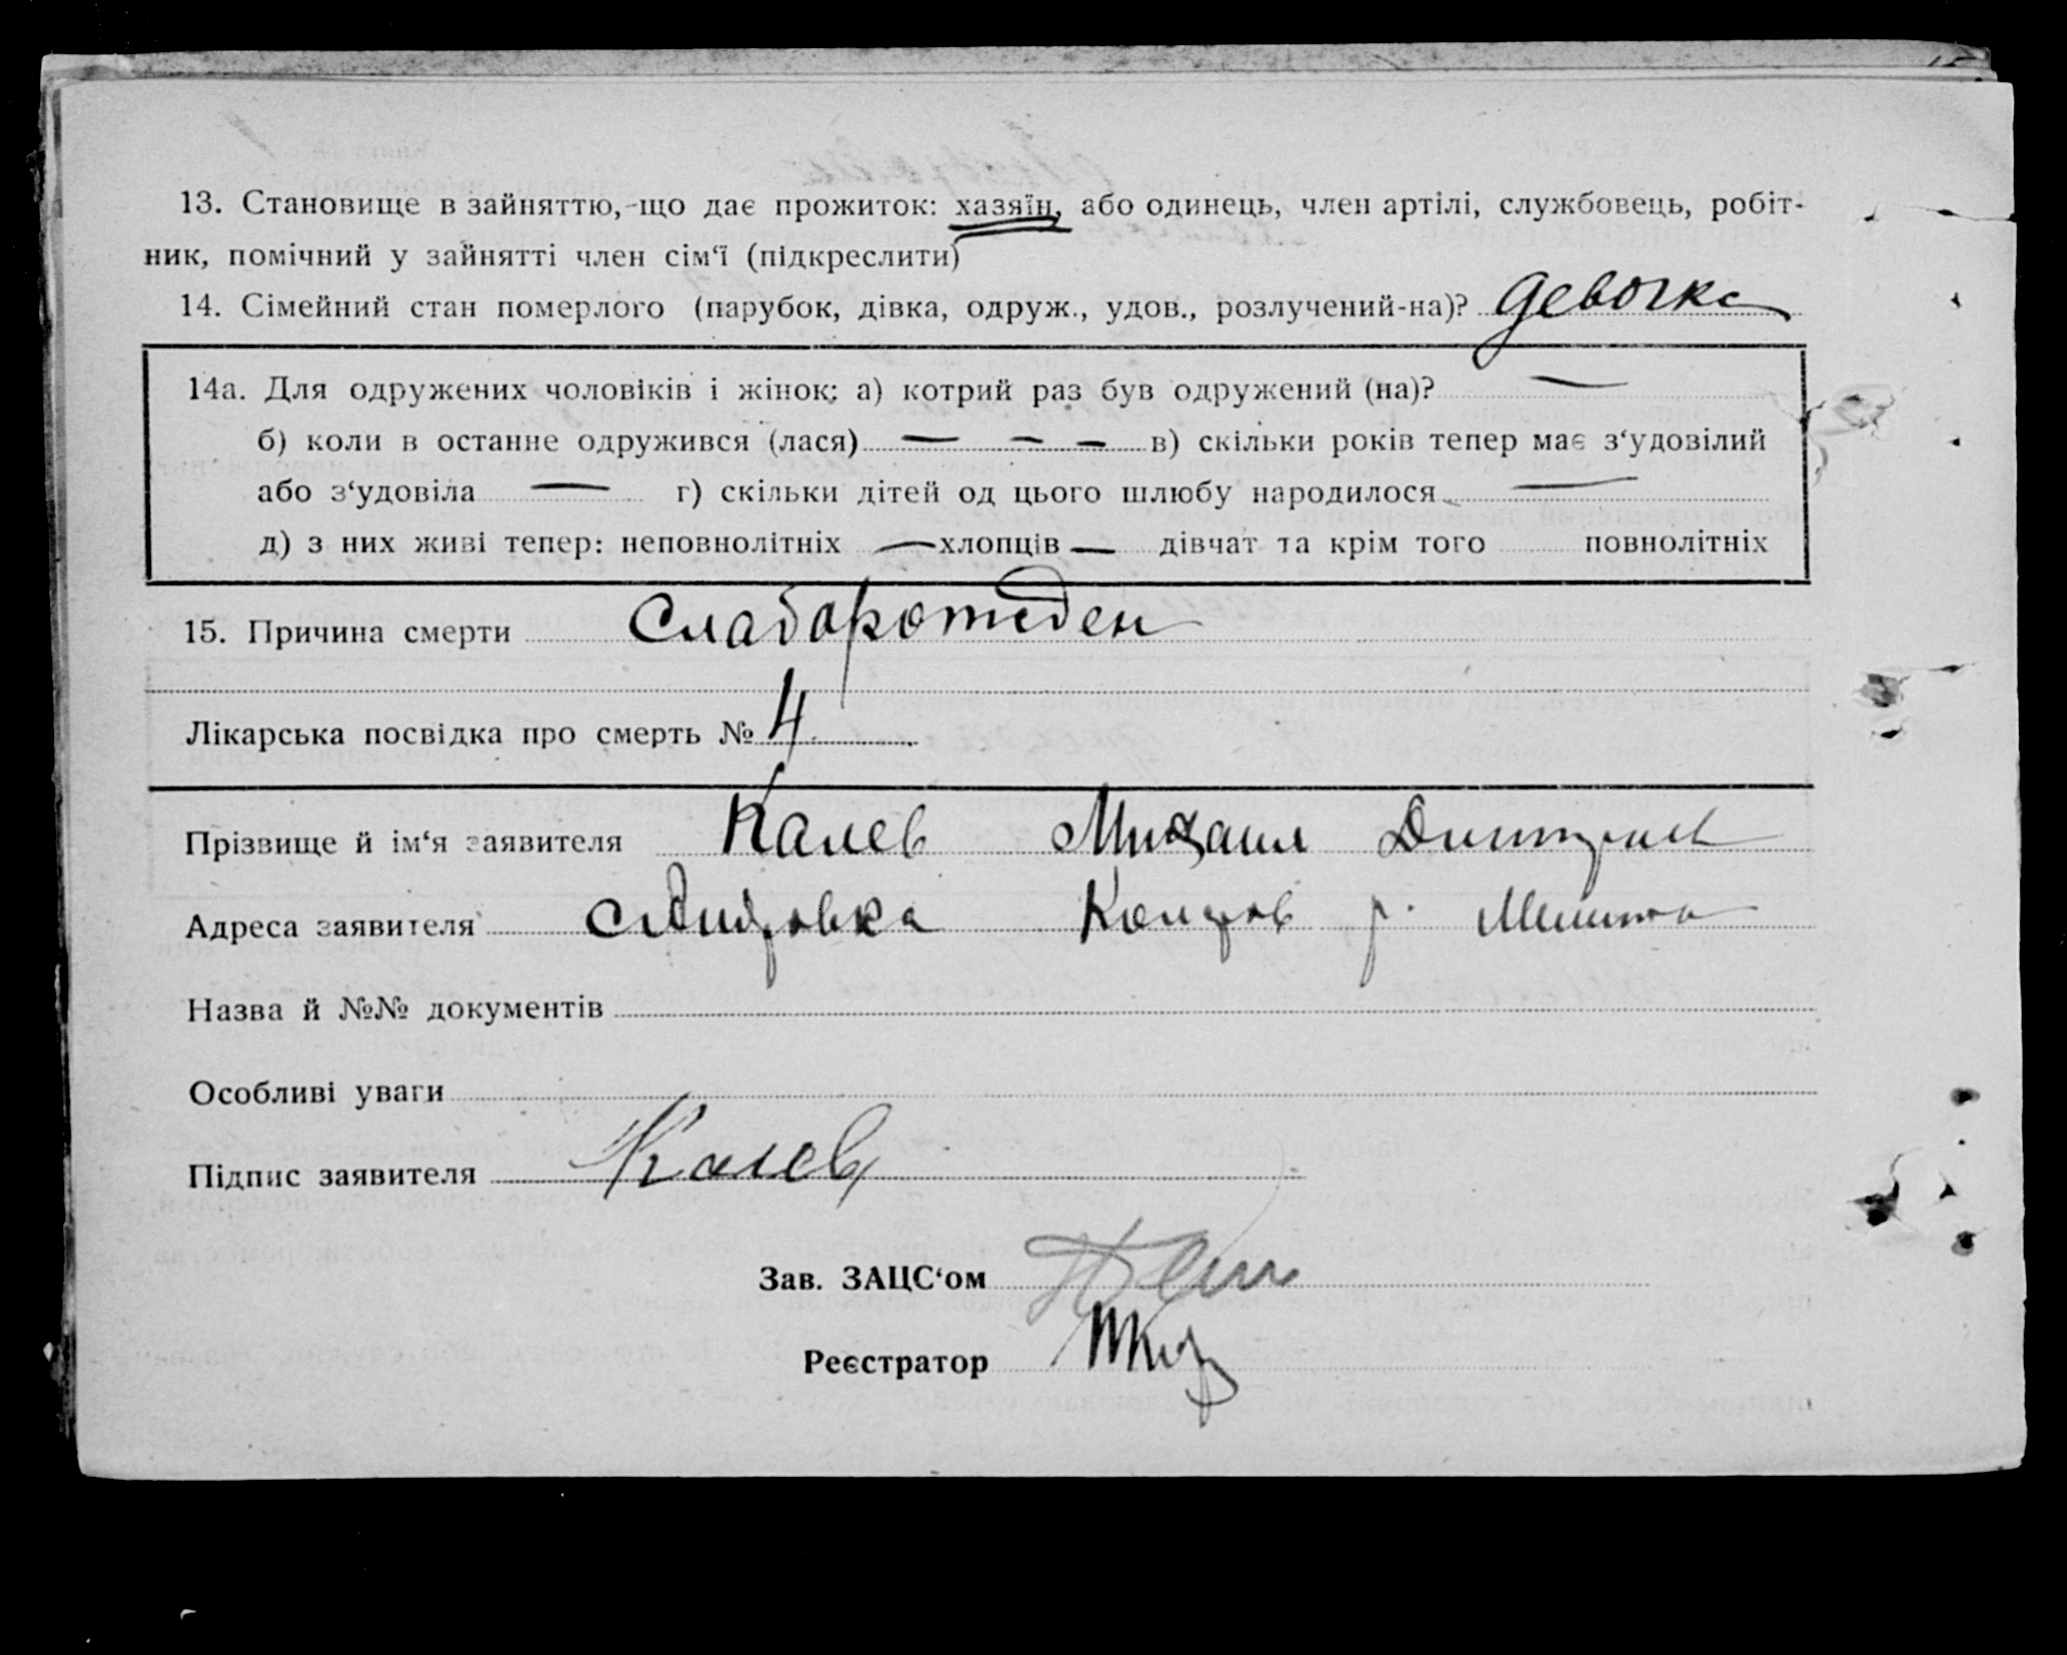 13. Становище в зайняттю, що дає прожиток: хазяїн, або одинець, член артілі, службовець, робіт-
ник, помічний у зайнятті член сім‘ї (підкреслити)
14. Сімейний стан померлого (парубок, дівка, одруж., удов., розлучений-на)? девочка
14а. Для одружених чоловіків і жінок: а) котрий раз був одружений (на)? —
б) коли в останне одружився (лася) — — — в) скільки років тепер має з‘удовілий
або з‘удовіла — г) скільки дітей од цього шлюбу народилося —
д) з них живі тепер: неповнолітніх — хлопців — дівчат та крім того повнолітніх
15. Причина смерти Слаборожден
Лікарська посвідка про смерть № 4
Прізвище й ім‘я заявителя Калев Михаил Дмитриев
Адреса заявителя р.
Назва й №№ документів
Особливі уваги
Підпис заявителя Калев
Зав. ЗАЦС‘ом
Реєстратор